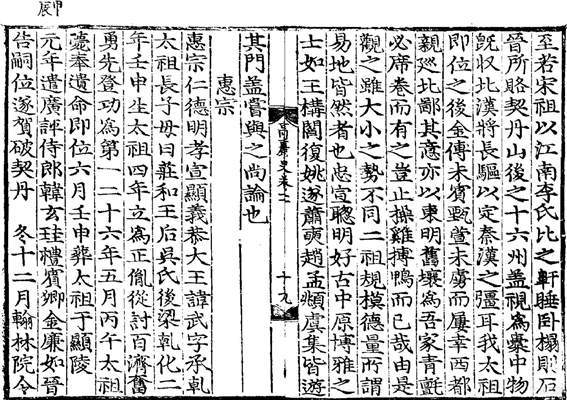 至若宋祖以江南李氏比之軒睡臥榻則石
晉所賂契丹山後之十六州盖視爲槖中物
旣收北漢將長驅以定秦漢之疆耳我太祖
即位之後金傅未賓甄萱未虜而屢幸西都
親廵北鄙其意亦以東明舊壤爲吾家青氊
必席卷而有之豈止操雞搏鴨而已哉由是
觀之雖大小之勢不同二祖規模德量所謂
易地皆然者也忠宣聰明好古中原博雅之
士如王構閻復姚遂蕭㪺趙孟頫虞集皆遊
高麗史卷二 十九
其門盖嘗與之尚論也
惠宗
惠宗仁德明孝宣顯義恭大王諱武字承乾
太祖長子母曰莊和王后吳氏後梁乾化二
年壬申生太祖四年立爲正胤從討百濟奮
勇先登功爲第一二十六年五月丙午太祖
薨奉遺命即位六月壬申葬太祖于顯陵
甲辰
元年遣廣評侍郎韓玄珪禮賓卿金廉如晉
告嗣位遂賀破契丹 冬十二月翰林院令